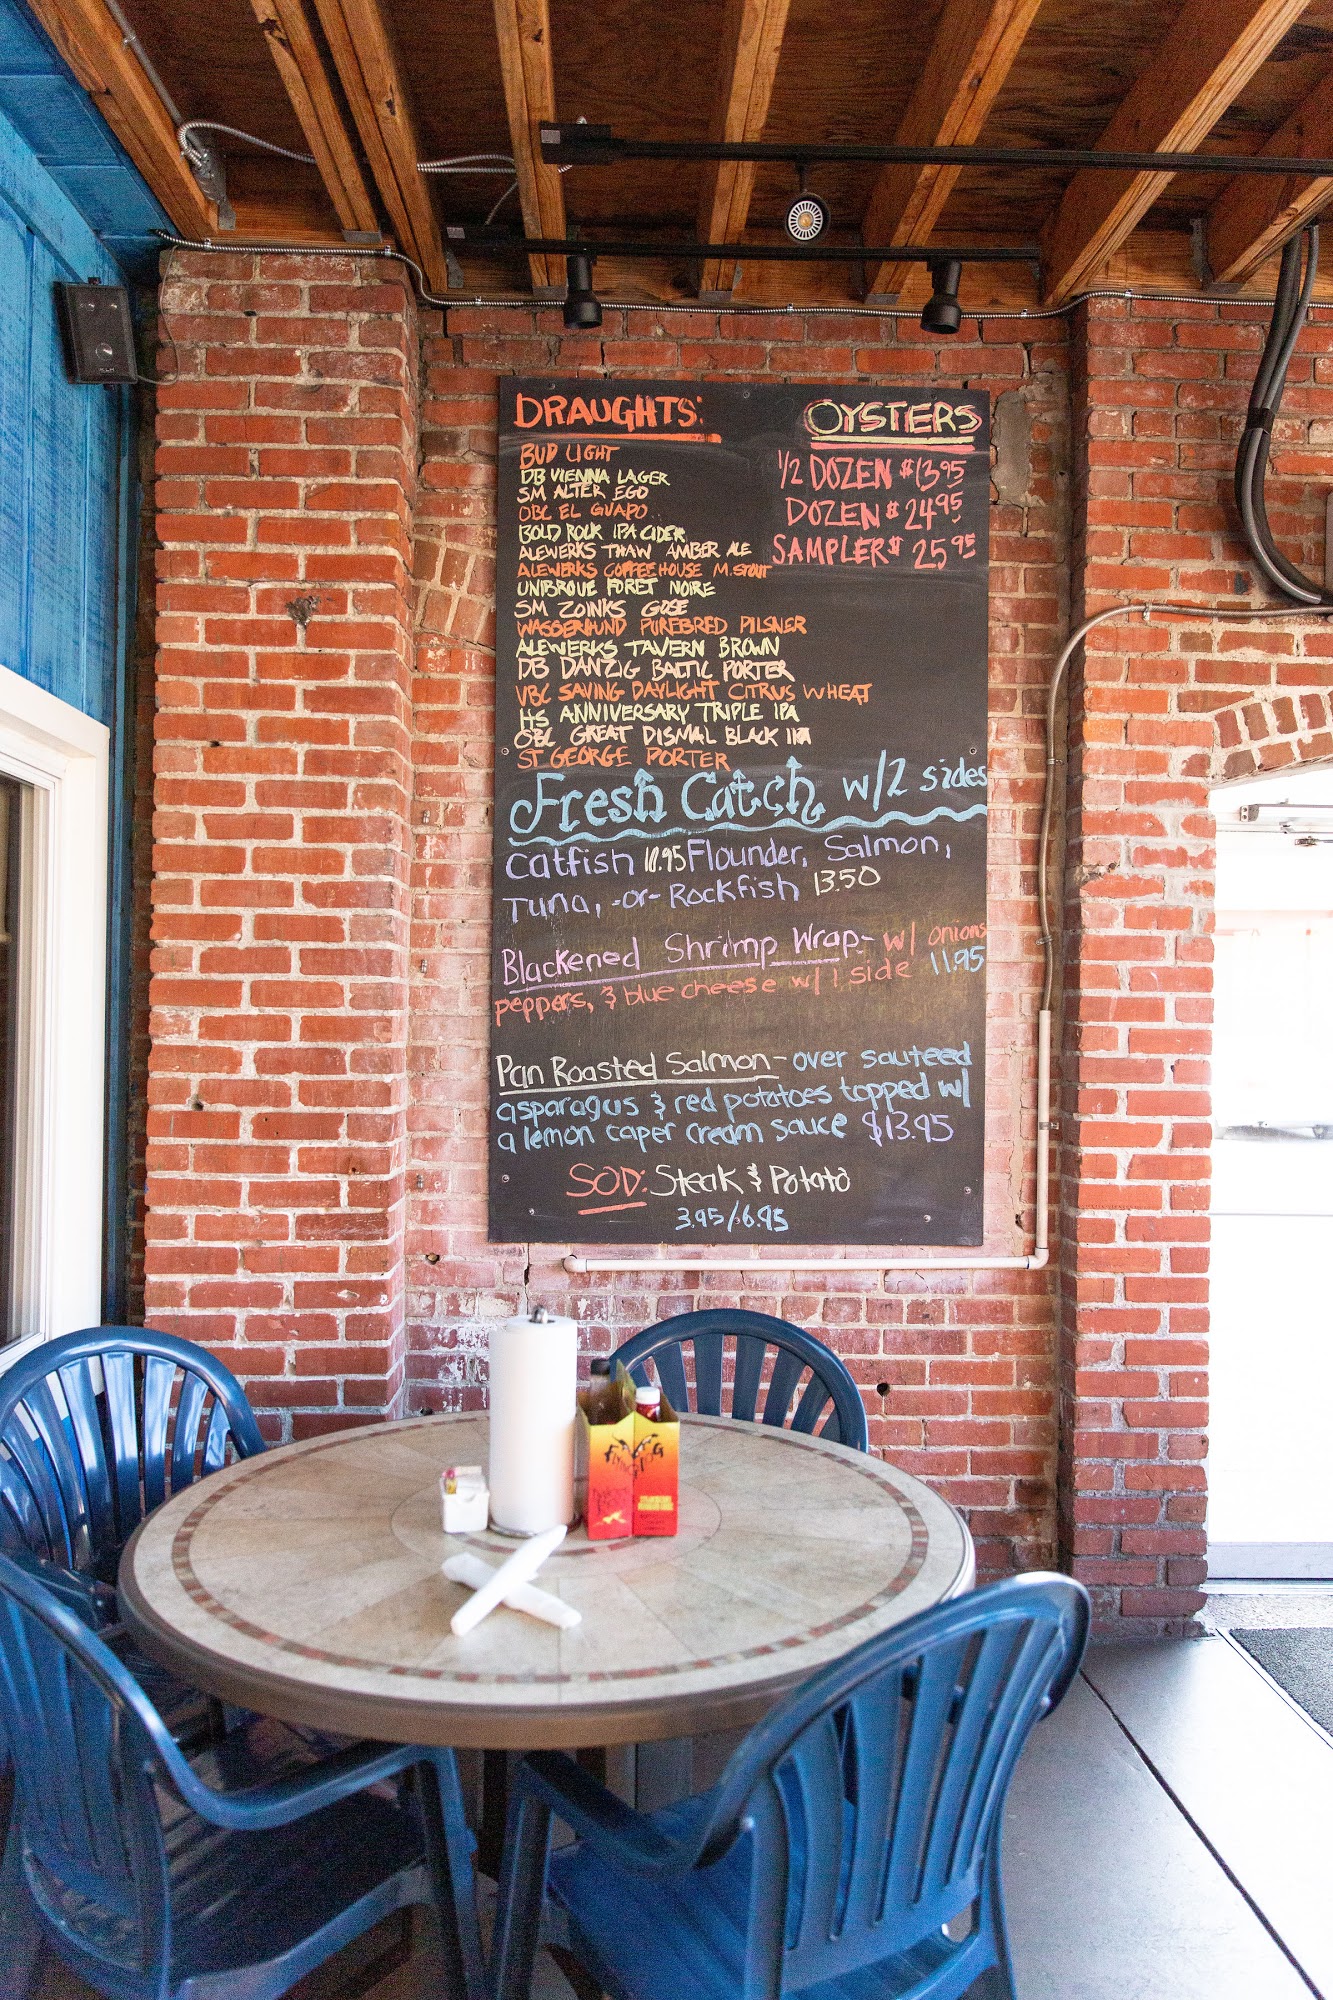 DRAUGHTS:
BUD LIGHT
DB VIENNA LAGER
SM ALTER EGO
OBC EL GUAPO
BOLD ROCK IPA CIDER
ALEWERKS THAW AMBER ALE
ALEWERKS COFFEEHOUSE M.STOUT
UNIBROUE FORET NOIRE
SM ZOINKS GOSE
WASSERHUND PUREBRED PILSNER
ALEWERKS TAVERN BROWN
DB DANZIG BALTIC PORTER
VBC SAVING DAYLIGHT CITRUS WHEAT
HS ANNIVERSARY TRIPLE IPA
OBC GREAT DISMAL BLACK IPA
ST GEORGE PORTER
OYSTERS
1/2 DOZEN $13.95
DOZEN $24.95
SAMPLER $25.95
Fresh Catch w/2 sides
Catfish 10.95 Flounder, Salmon,
Tuna, -or- Rockfish 13.50
Blackened Shrimp Wrap- w/ onions
peppers, & blue cheese w/ 1 side 11.95
Pan Roasted Salmon- over sauteed
asparagus & red potatoes topped w/
a lemon caper cream sauce $13.95
SOD: Steak & Potato
3.95/6.95
FLYING DOG